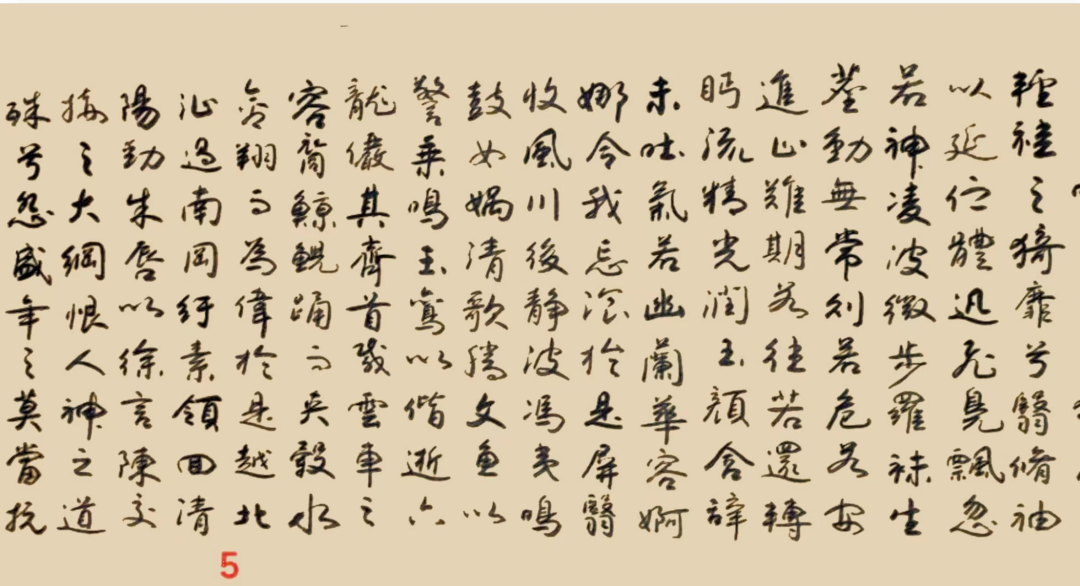 輕袿之猗靡兮翳脩袖
以延佇體迅飛鳧飄忽
若神凌波微步羅袜生
塵動無常則若危若安
進止難期若往若還轉
眄流精光潤玉顔含辭
未吐氣若幽蘭華容婀
娜令我忘飡於是屏翳
收風川後静波馮夷鳴
鼓女媧清歌騰文魚以
警乗鳴玉鸞以偕逝六
龍儼其齊首載雲車之
容裔鯨鯢踊而夾轂水
禽翔而為偉於是越北
沚過南岡紆素領回清
陽動朱唇以徐言陳交
接之大綱恨人神之道
殊兮怨盛年之莫當抗
5